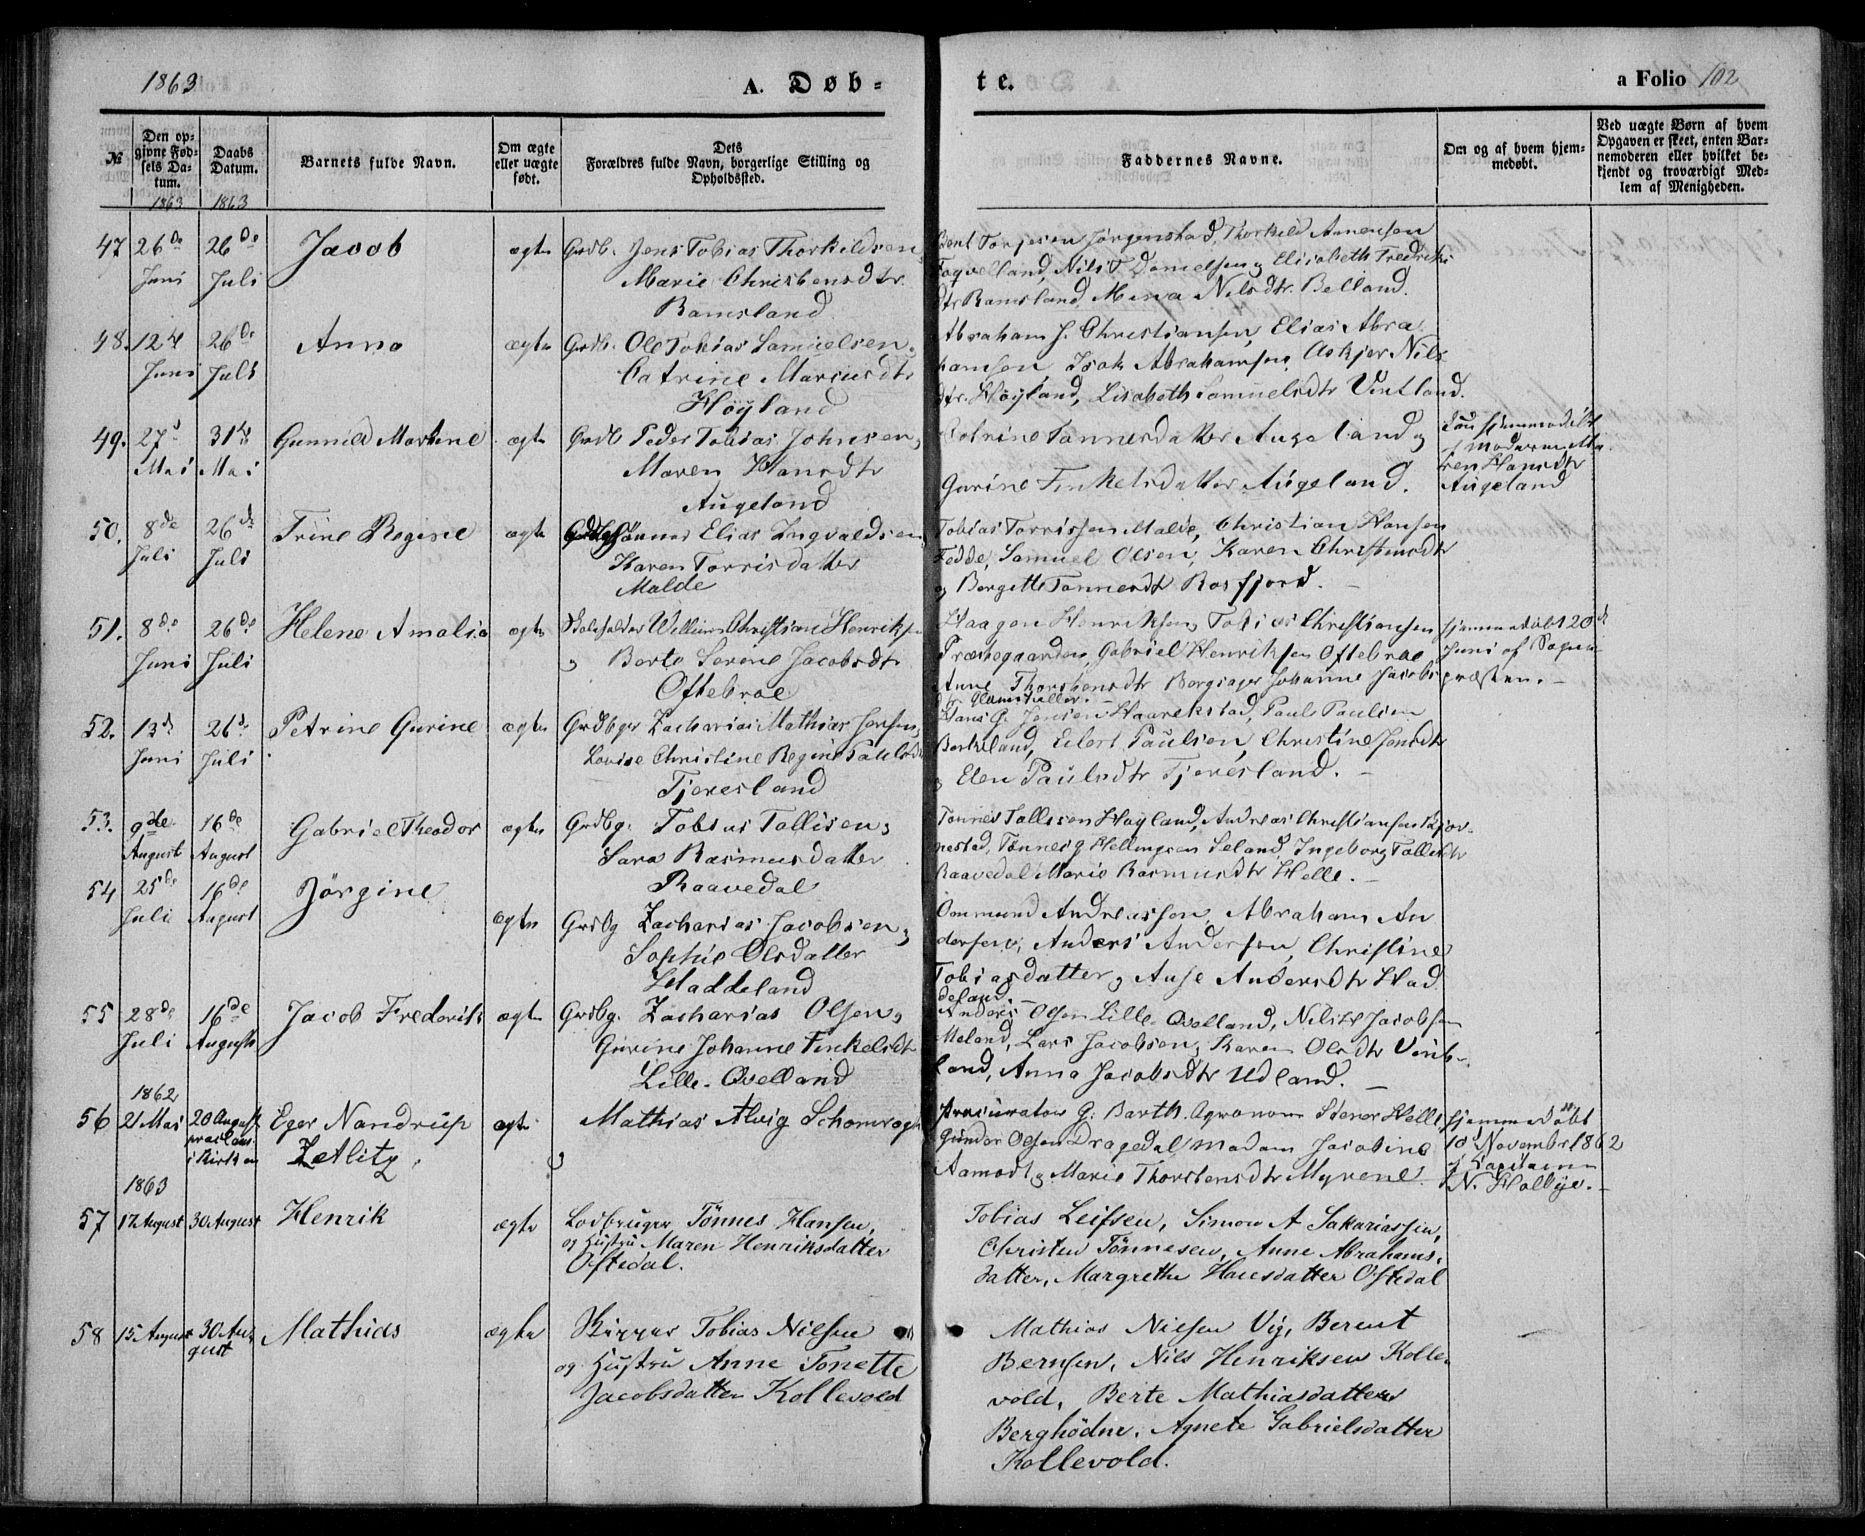 1863
A. Døb=
te.
a Folio 102
№
Den op-
givne Fød-
sels Da-
tum.
1863
Daabs
Datum.
1863
Barnets fulde Navn.
Om ægte
eller uægte
født.
Dets
Forældres fulde Navn, borgerlige Stilling og
Opholdssted.
Faddernes Navne.
Om og af hvem hjem-
medøbt.
Ved uægte Børn af hvem
Opgaven er skeet, enten Bar-
nemoderen eller hvilket be-
kjendt og troværdigt Med-
lem af Menigheden.
47 26de
Juni
26de
Juli
Jacob
ægte
Grdb. Jens Tobias Thorkildsen
Marie Christensdtr.
Ramsland
Bent Torjesen Jørgenstad, Thorkild Annensen
Nils T Danielsen og Elisabeth Fredriks
dtr Ramsland Mina Nilsdtr. Belland.
48. 12te
Juni
26de
Juli
Anna
ægte
Grdb. Ole Tobias Samuelsen
Catrine Marcusdtr
Høyland
Abraham J. Christiansen, Elias Abra
hamsen, Isak Abrahamsen, Askjer Nils
dtr. Høyland, Lisabeth Samuelsdtr Vintland.
49. 27d
Mai
31te
Mai
Gunnild Martine
ægte
Grdb Peder Tobias Johnsen
Maren Hansdtr
Augeland
Tønnesdatter Augeland og
Gurine Finkelsdatter Augeland.
Hjemmedøbt
f Moderen Ma
ren Hansdtr
Augeland
50. 8de
Juli
26de
Juli
Trine Regine
ægte
Elias Ingvaldsen
Karen Torrisdatter
Malde
Tobias Torrissen Malde, Christian Hansen
Fedde, Samuel Olsen, Karen Christensdtr
og Borgette Tønnesdtr Rosfjord.
51. 8de
Juni
26de
Juli
Helene Amalia
ægte
Skoleholder William Christian Henriksen
og Berte Serine Jacobsdtr
Oftebroe
Haagen Henriksen, Tobias Christiansen
Præstegaarden, Gabriel Henriksen Oftebroe
Anne Thorstensdtr Bergsager Johanne Jacobs
dtr
hjemmedøbt 20d
Juni af Sogne-
præsten.
52. 13d
Juni
26d
Juli
Petrine Gurine
ægte
Grdbger Zacharias Mathias Jensen,
Lovise Christine Regine Paulsdtr
Tjeresland
Hans G. Jensen Haarekstad, Paul Paulsen
Berkeland, Eilert Paulsen, Christine Jensdtr
og Elen Paulsdtr Tjeresland.
53. 9de
August
16de
August
Gabriel Theodor
ægte
Grdbg. Tobias Tallisen,
Sara Rasmusdatter
Raavedal
Tønnes Tallissen Høyland, Andreas Christiansen
nestad, Tønnes G Hellingsen Seland, Ingeborg Tallisdtr
Raavedal Marie Rasmusdtr Helle.
54 25de
Juli
16de
August
Jørgine
ægte
Grdbg Zacharias Jacobsen
Sophie Olsdatter
Haddeland
Ommund Andreassen, Abraham An
dersen, Anders Andersen, Christine
Tobiasdatter og Anse Andersdtr Had
deland.
55 28de
Juli
16de
August
Jacob Frederik
ægte
Grdbg. Zacharias Olsen,
Gurine Johanne Finkelsdtr
Lille-Qvelland
Anders Olsen Lille-Qvelland, Nils Jacobsen
Meland, Lars Jacobsen, Karen Olsdtr Vint-
land, Anna Jacobsdtr Udland.
1862
56 21 Mai
20 August
i Kirken
Eger Nandrup
Zetlitz.
ægte
Mathias Alvig Schomragh
og
Procurator G. Barth. Agronom Stener Helle
Gunder Olsen Dragedal, Madam Jacobine
Aamodt og Marie Thorstensdtr Myrene.
hjemmedøbt
10d Novembr 1862
f Capitain
N. Holbye.
1863
57 12 August
30 August
Henrik
ægte
Lodbruger Tønnes Hansen,
og Hustru Maren Henriksdatter
Oftedal.
Tobias Leifsen, Simon A Sakariassen,
Christen Tønnesen, Anne Abrahams-
datter, Margrethe Hansdatter Oftedal
58 15 August
30 Au
gust
Mathias
ægte
Skipper Tobias Nilsen
og Hustru Anne Tonette
Jacobsdatter Kollevold
Mathias Nilsen Vig, Berent
Bernsen, Nils Henriksen Kolle-
vold, Berte Mathiasdatter
Berghødne, Agnete Gabrielsdatter
Kollevold.